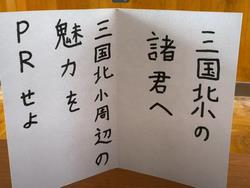 三国北小の
諸君へ
三国北小周辺の
魅力を
PRせよ